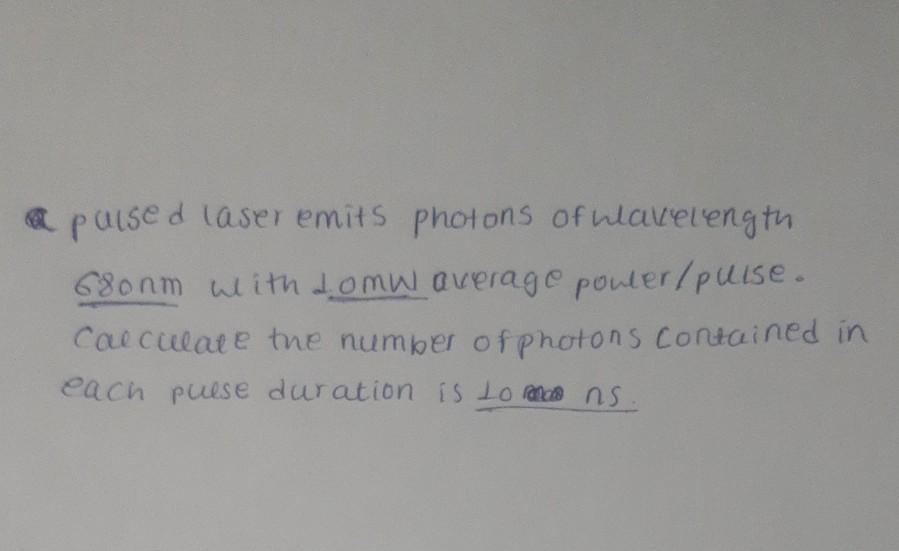 a pulsed laser emits photons of wavelength
680nm with 10mW average power/pulse.
Calculate the number of photons contained in
each pulse duration is 10 ns.